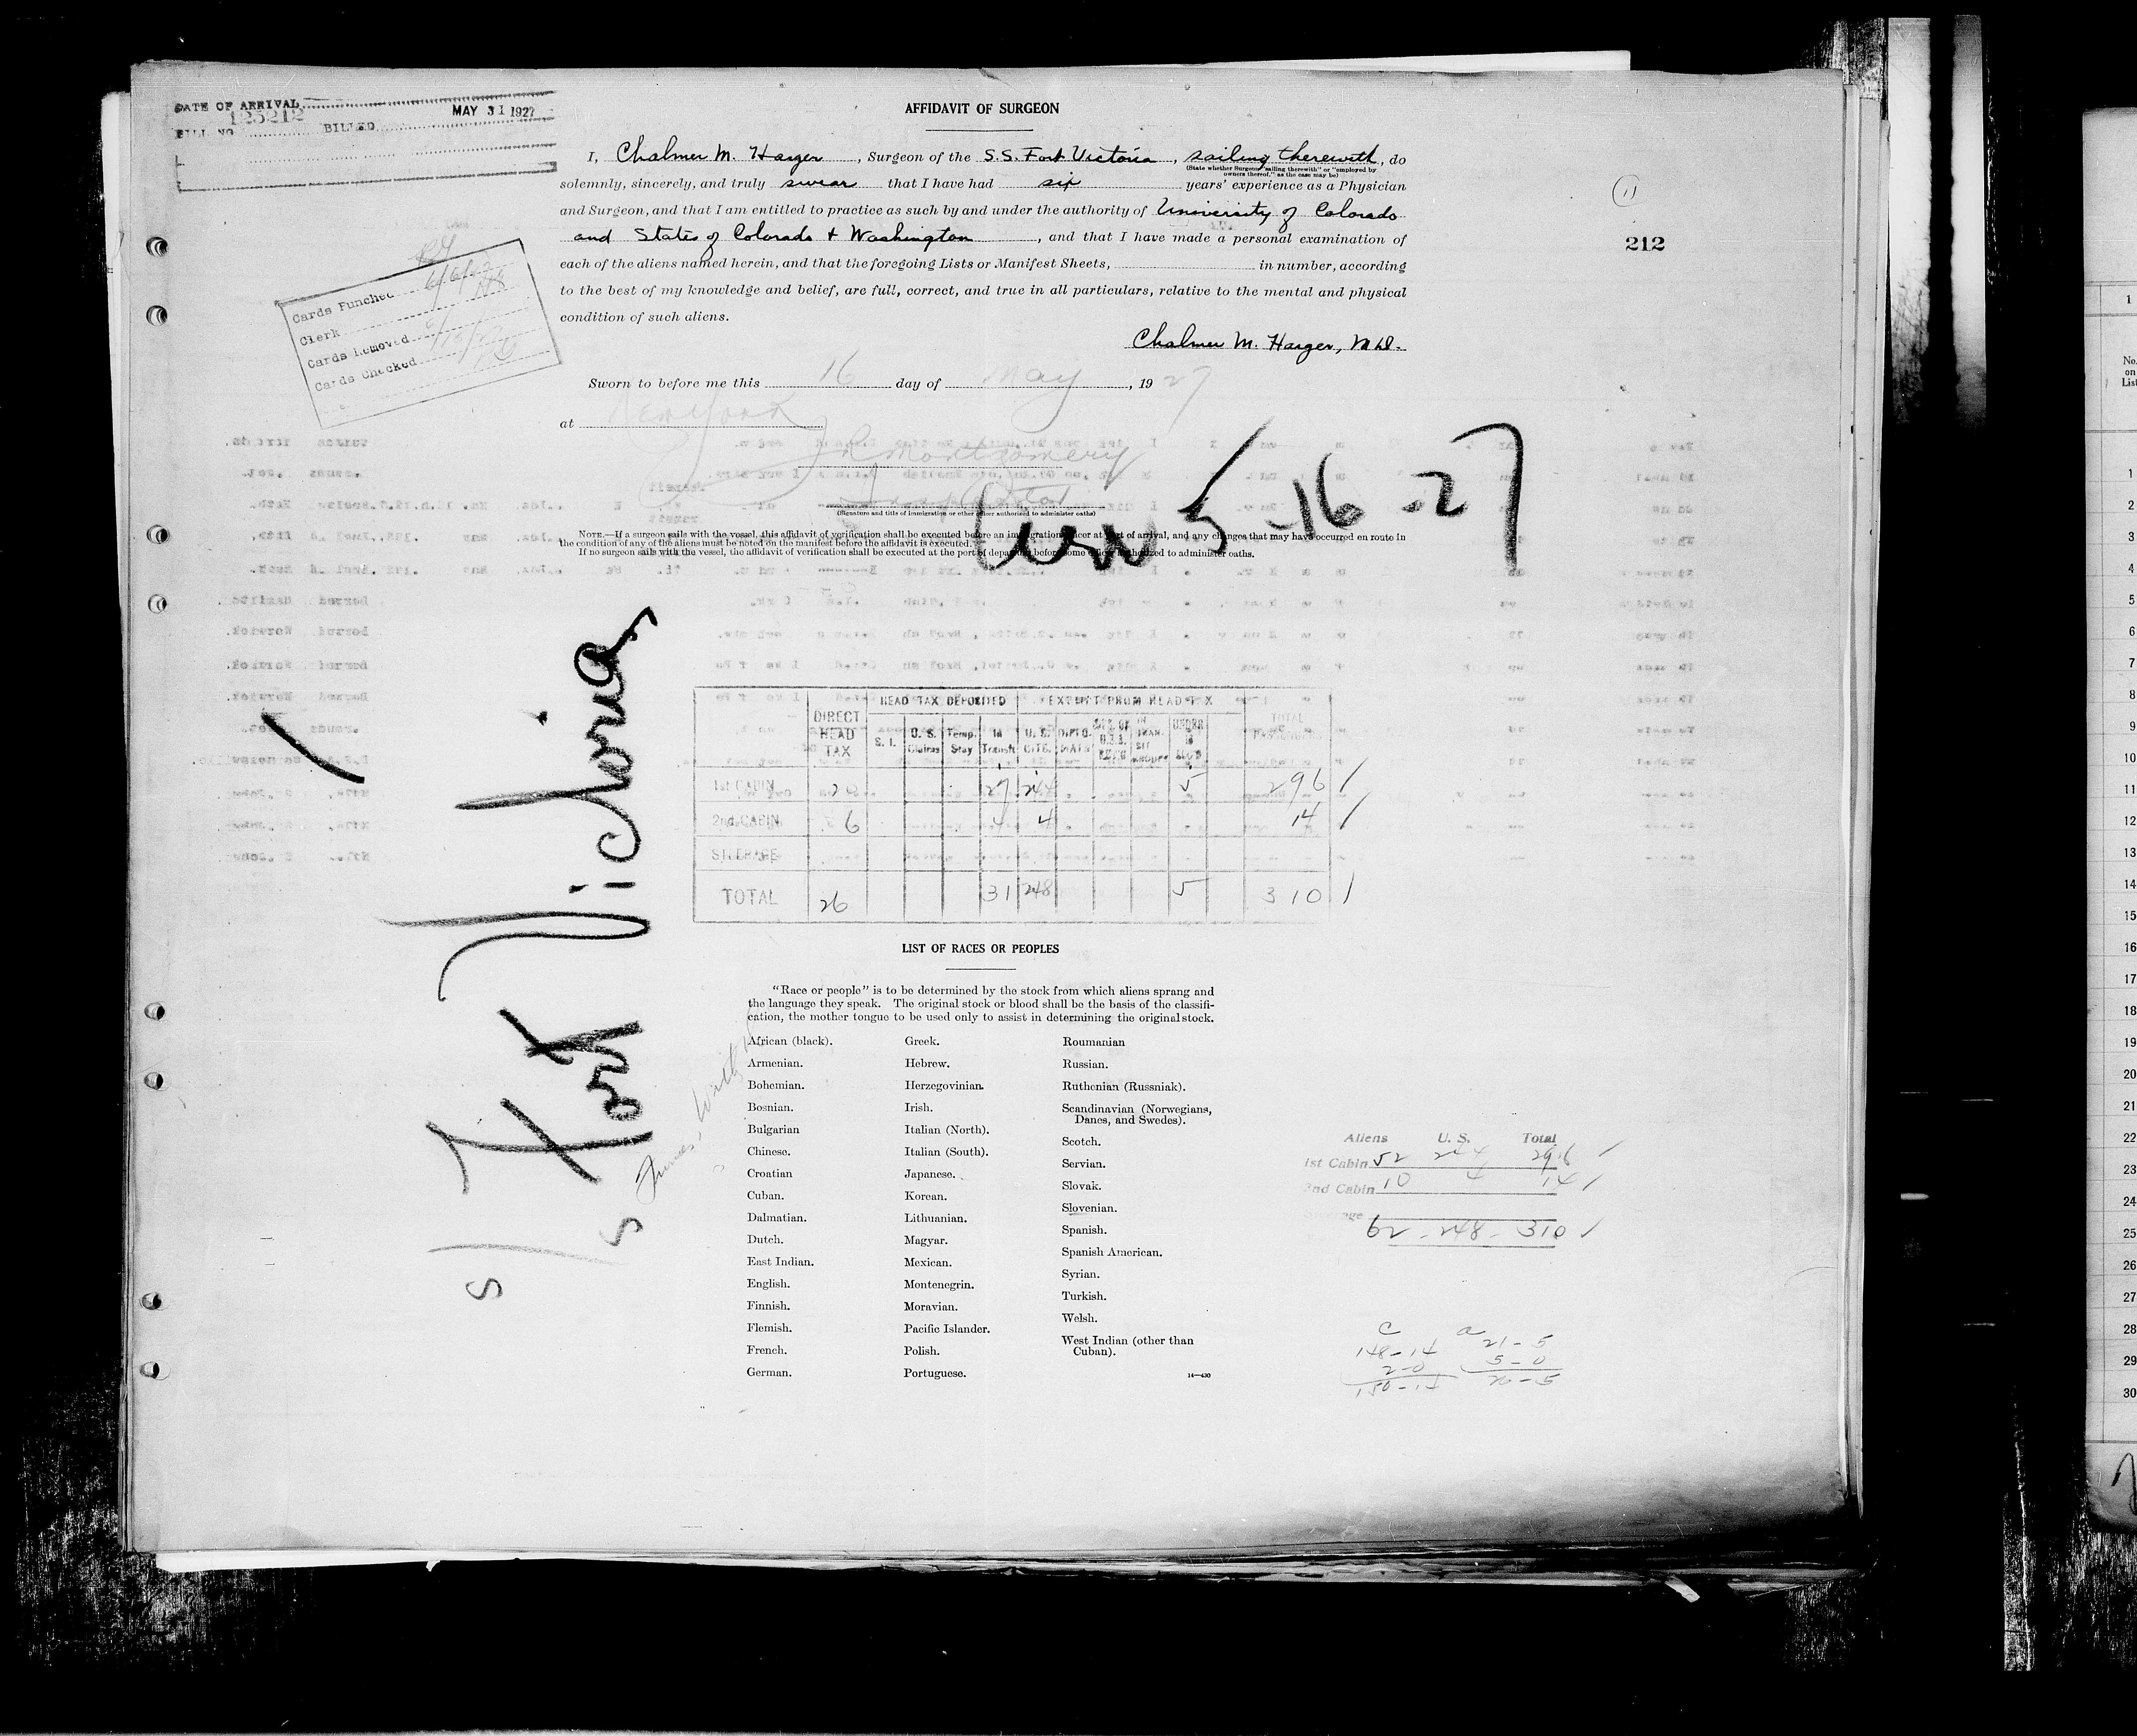 DATE OF ARRIVAL MAY 31 1927
125212
BILL NO. BILLED
AFFIDAVIT OF SURGEON
I, Chalmer M. Hager, Surgeon of the S.S. Fort Victoria, sailing therewith, do
(State whether Surgeon "sailing therewith" or "employed by owners thereof," as the case may be)
solemnly, sincerely, and truly swear that I have had six years' experience as a Physician
and Surgeon, and that I am entitled to practice as such by and under the authority of University of Colorado
and States of Colorado & Washington, and that I have made a personal examination of
each of the aliens named herein, and that the foregoing Lists or Manifest Sheets, in number, according
to the best of my knowledge and belief, are full, correct, and true in all particulars, relative to the mental and physical
condition of such aliens.
Chalmer M. Hager, M.D.
11
212
Cards Punched
Clerk
Cards Removed
Cards Checked
Sworn to before me this 16 day of May, 1927
at New York
Montgomery
(Signature and title of immigration or other officer authorized to administer oaths)
5-16-27
NOTE.—If a surgeon sails with the vessel, this affidavit of verification shall be executed before an immigration officer at port of arrival, and any changes that may have occurred en route in
the condition of any of the aliens must be noted on the manifest before the affidavit is executed.
If no surgeon sails with the vessel, the affidavit of verification shall be executed at the port of departure before some officer authorized to administer oaths.
S S Fort Victoria
HEAD TAX DEPOSITED EXEMPT FROM HEAD TAX
DIRECT HEAD TAX S. I. U. S. Claims Temp. Stay In Transit U. S. CITZ. DIPLO-MATS UNDER 16 TOTAL PASSENGERS
1st CABIN 20 27 244 5 296
2nd CABIN 6 4 4 14
STEERAGE
TOTAL 26 31 248 5 310
LIST OF RACES OR PEOPLES
"Race or people" is to be determined by the stock from which aliens sprang and
the language they speak. The original stock or blood shall be the basis of the classifi-
cation, the mother tongue to be used only to assist in determining the original stock.
African (black).
Armenian.
Bohemian.
Bosnian.
Bulgarian
Chinese.
Croatian
Cuban.
Dalmatian.
Dutch.
East Indian.
English.
Finnish.
Flemish.
French.
German.
Greek.
Hebrew.
Herzegovinian.
Irish.
Italian (North).
Italian (South).
Japanese.
Korean.
Lithuanian.
Magyar.
Mexican.
Montenegrin.
Moravian.
Pacific Islander.
Polish.
Portuguese.
Roumanian
Russian.
Ruthenian (Russniak).
Scandinavian (Norwegians,
Danes, and Swedes).
Scotch.
Servian.
Slovak.
Slovenian.
Spanish.
Spanish American.
Syrian.
Turkish.
Welsh.
West Indian (other than
Cuban).
14—430
Aliens U. S. Total
1st Cabin 52 244 296
2nd Cabin 10 4 14
62 - 248 - 310
C a
148-14 21-5
2-0 5-0
150-14 26-5
1
No. on List
1
2
3
4
5
6
7
8
9
10
11
12
13
14
15
16
17
18
19
20
21
22
23
24
25
26
27
28
29
30